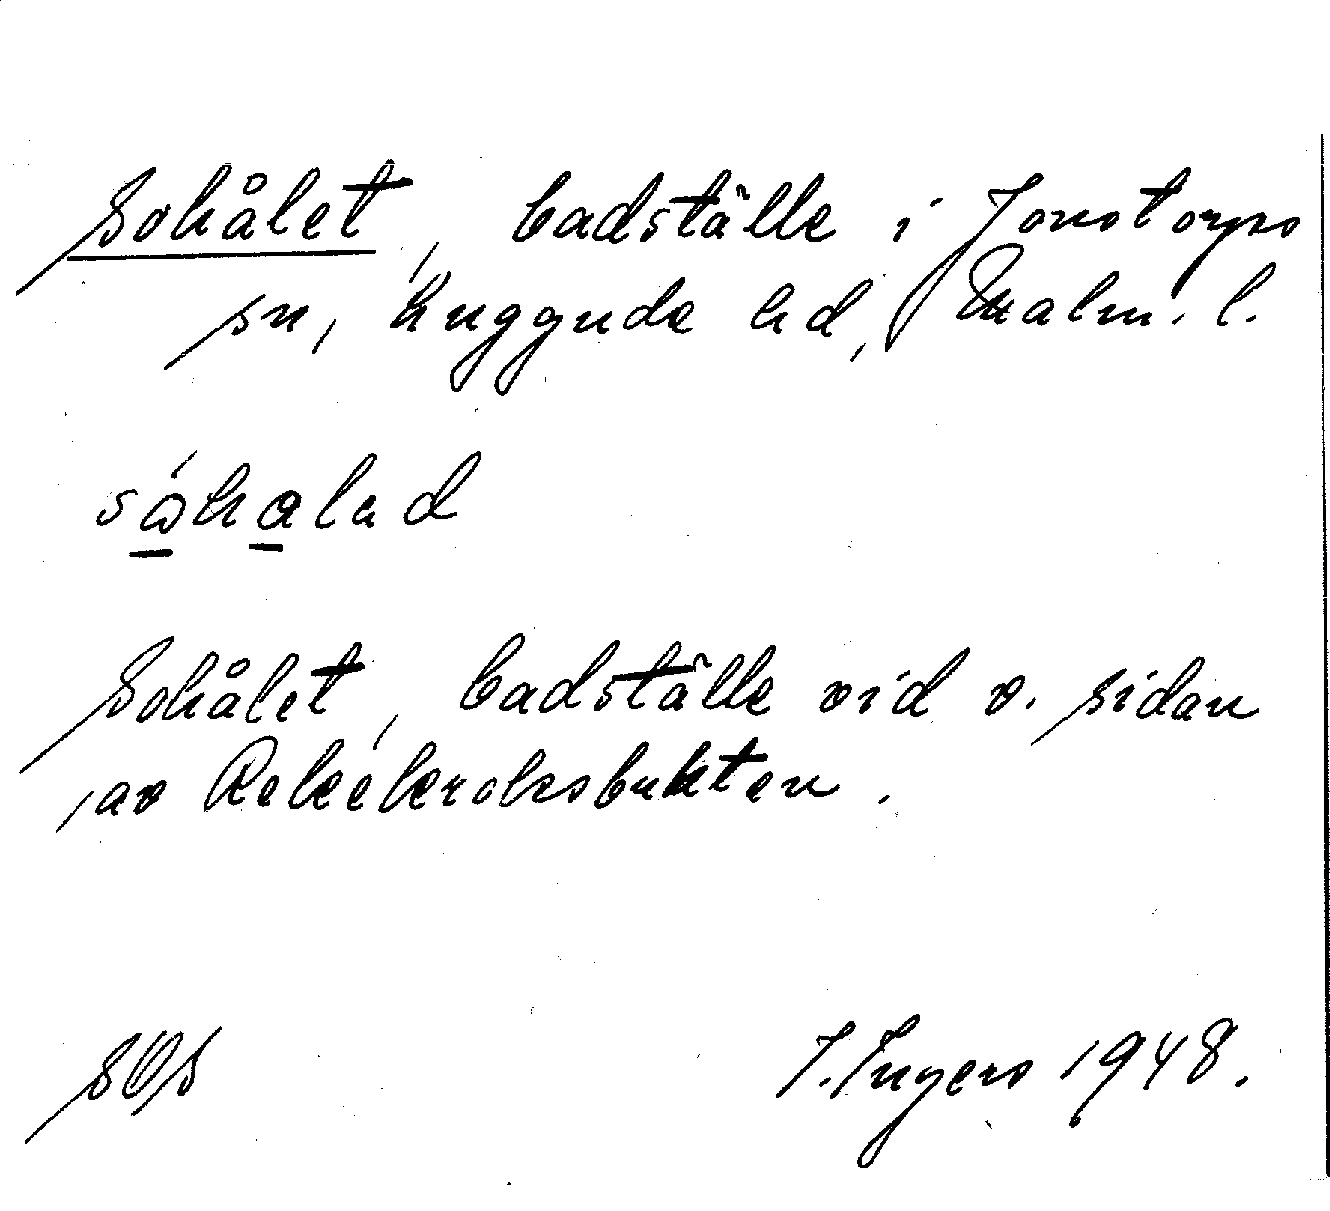 Sohålet, badställe i Jonstorps
sn, Luggude hd, Malm. l.
Sohålet, badställe vid v. sidan
av Rekekroksbukten.
SOS I. Ingers 1948.